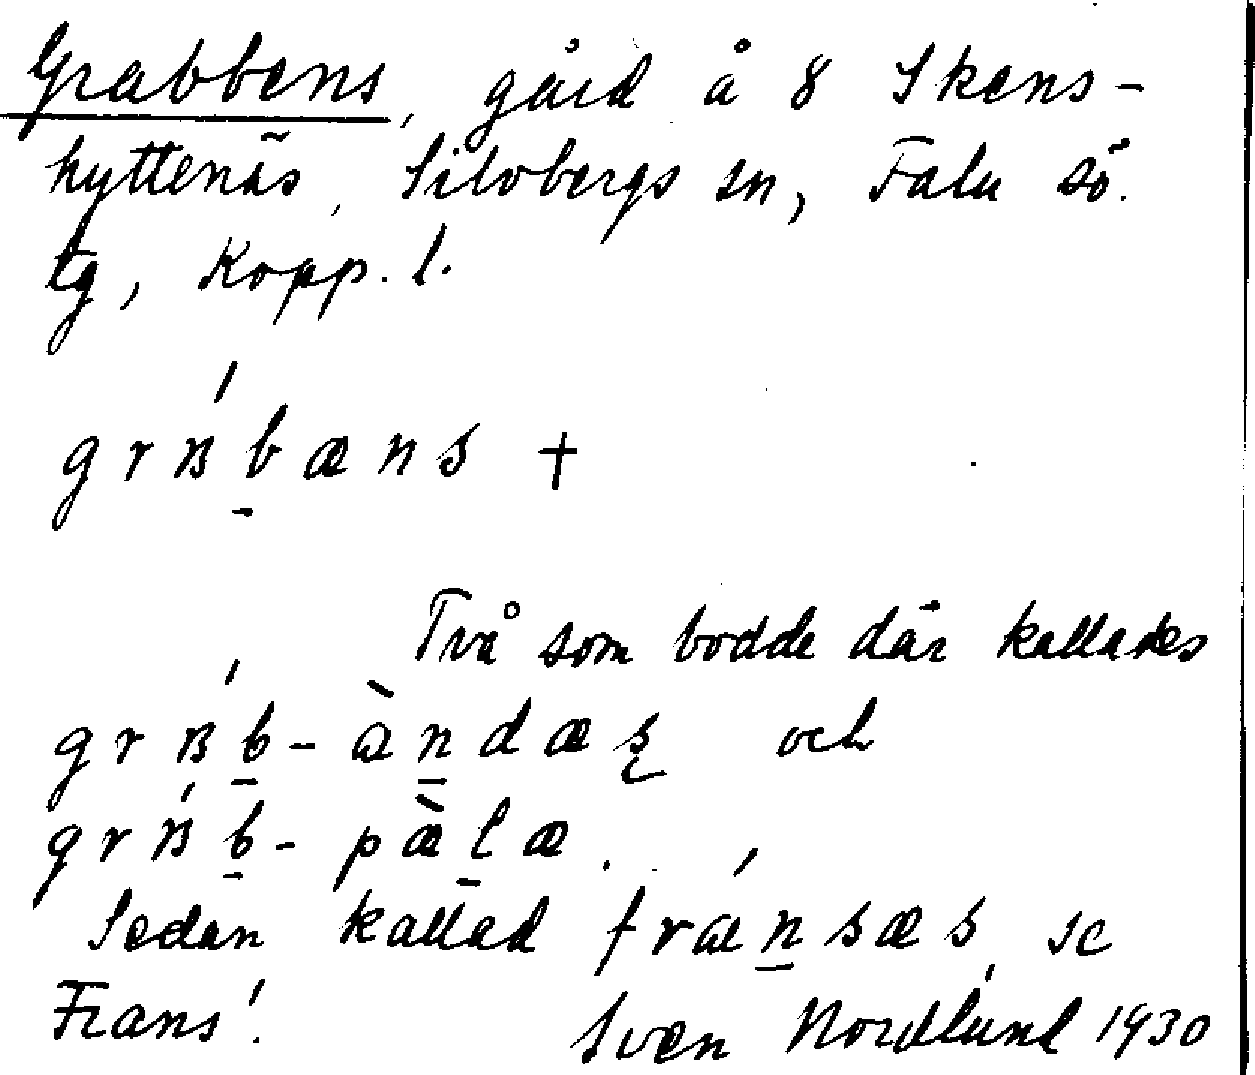 Grabbens, gård å 8 Skens-
hyttenäs, Silvbergs sn, Falu sö.
tg, Kopp. l.
grʙ́b̠æns +
Två som bodde där kallades
grʙ́b̠-àn̠dæʂ och
grʙ́b̠-pæ̀l̠æ.
Sedan kallad frán̠sæs, se
Frans'!
Sven Nordlund 1930